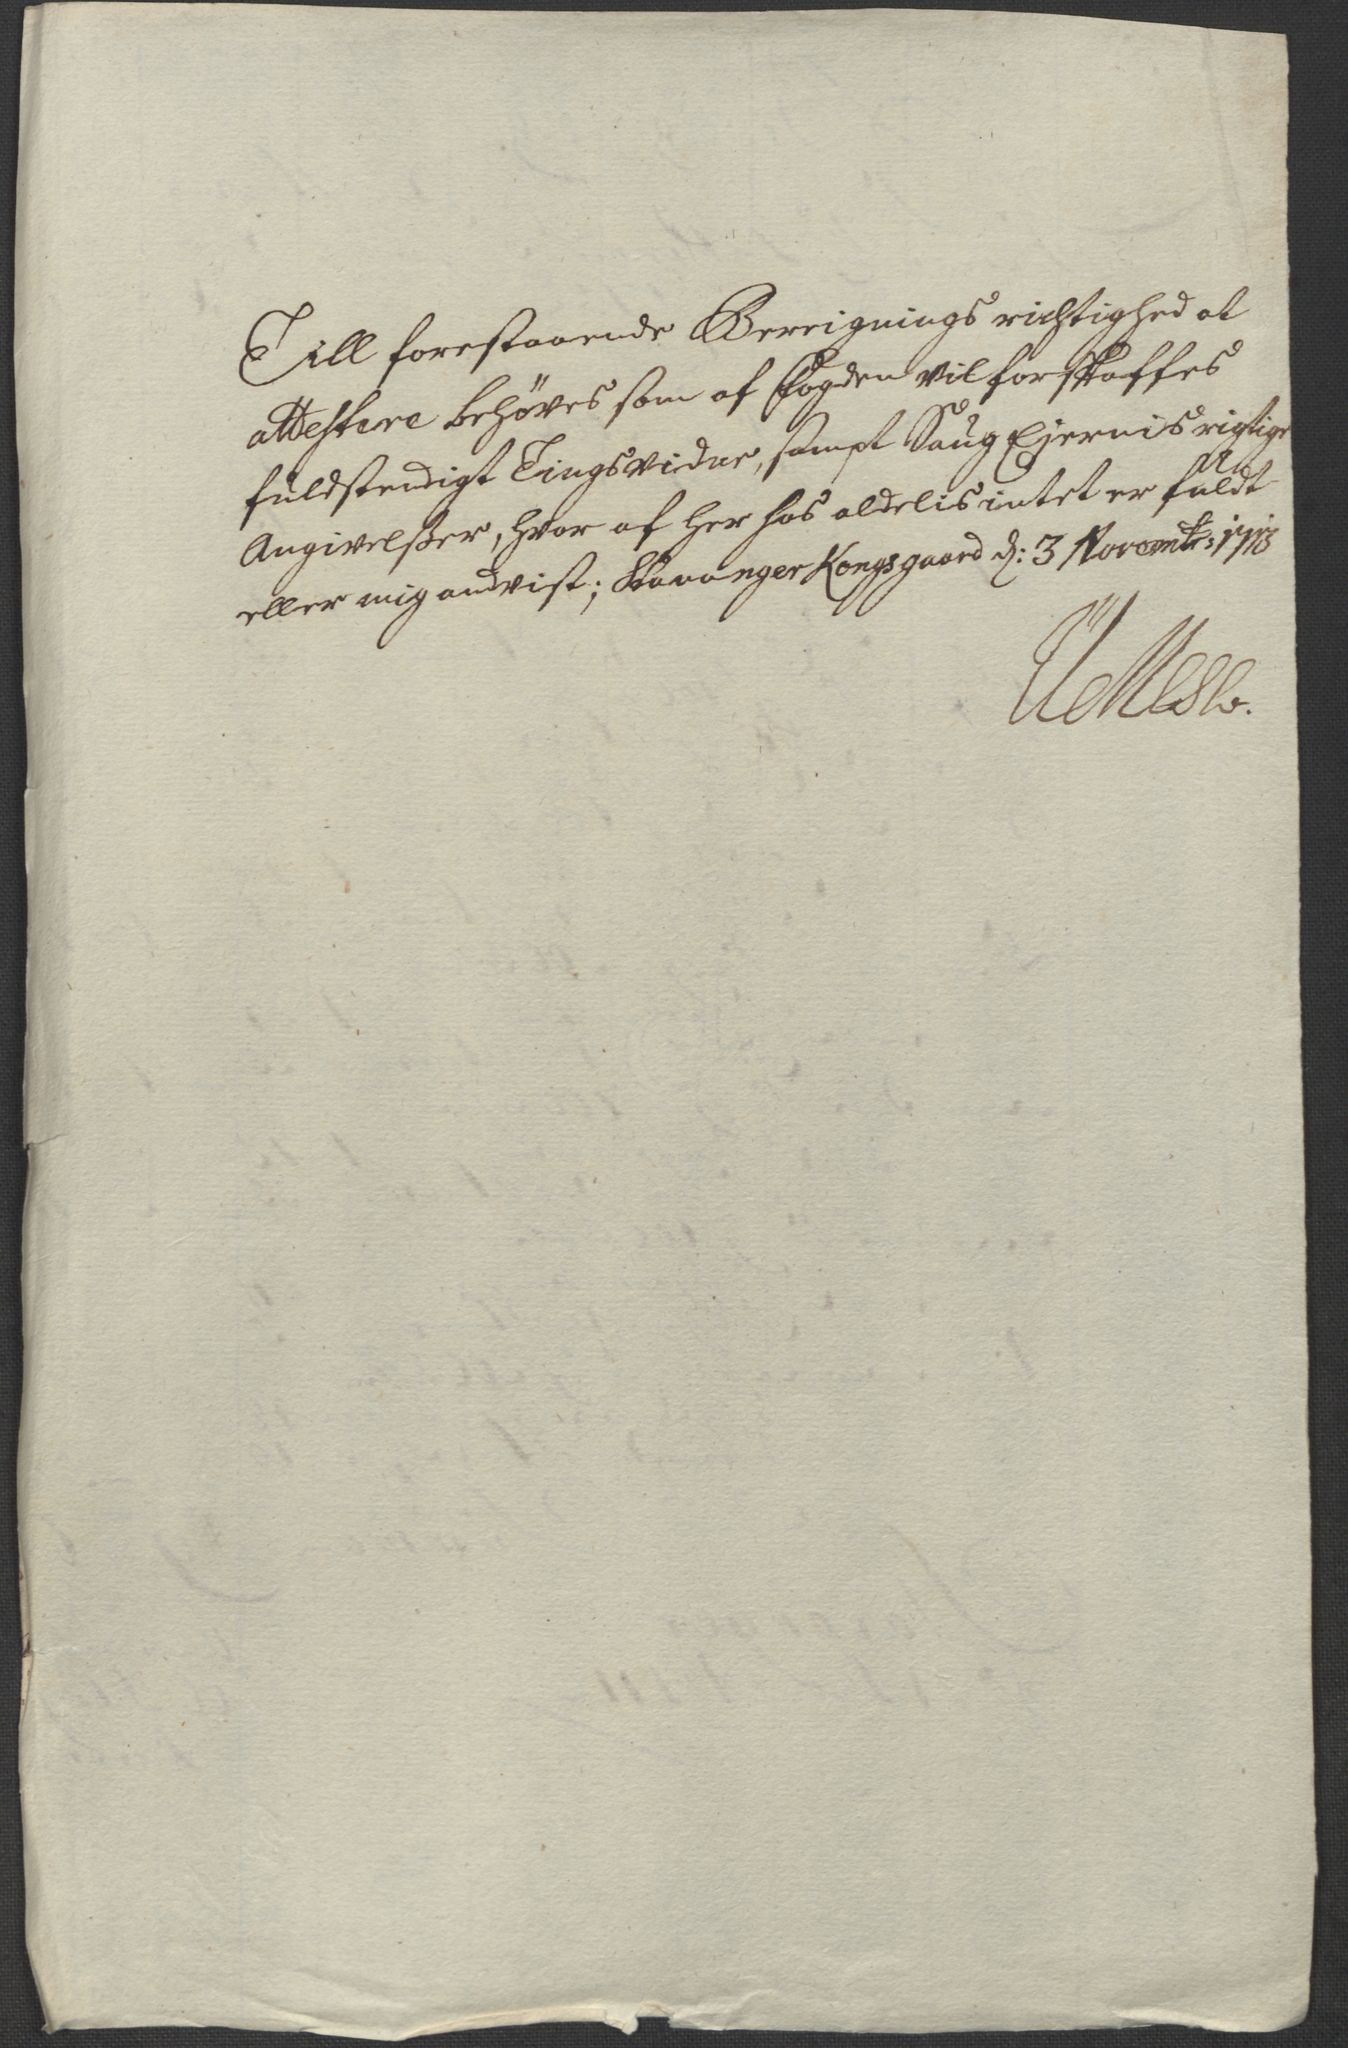 Till forestaaende Bereignings richtighed at
attestere behöves som af fogden vil forskaffes
fuldstendigt Tingsvidne, sampt Saug Ejernis rigtige
Angivelßer, hvor af her hos aldelis intet er fuldt
eller mig andvist; Stavanger Kongsgaard d: 3 Novembr: 1713